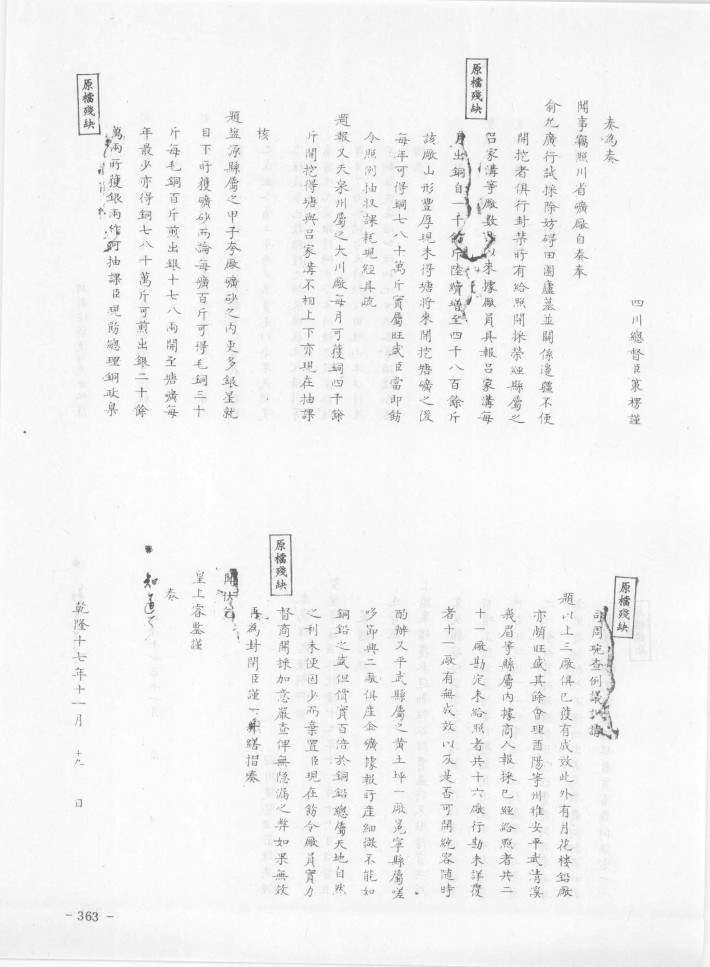 四川總督臣策楞謹
奏為奏
聞事竊照川省礦廠自奏奉
俞允廣行試採除妨碍田園廬墓並關係邊疆不便
開挖者俱行封禁所有給照開採榮經縣屬之
呂家溝等廠數以來據廠員具報呂家溝每
原檔殘缺
月出銅自一千餘斤陸續增至四千八百餘斤
該廠山形豐厚現未得塘將來開挖塘礦之後
每年可得銅七八十萬斤實屬旺盛臣當即飭
令照例抽收課耗現經具疏
題報又天泉州屬之大川廠每月可獲銅四千餘
斤開挖得塘與呂家溝不相上下亦現在抽課
核
題鹽源縣屬之甲子夸廠礦砂之內更多銀星就
目下所獲礦砂而論每礦百斤可得毛銅三十
斤每毛銅百斤煎出銀十七八兩開至塘礦每
年最少亦得銅七八十萬斤可煎出銀二十餘
原檔殘缺
萬兩所獲銀兩作何抽課臣現飭總理銅政臬
原檔殘缺
司周琬查例議
題以上三廠俱已獲有成效此外有月花樓鉛廠
亦頗旺盛其餘會理酉陽寧州雅安平武清溪
峩眉等縣屬內據商人報採已經給照者共二
十一廠勘定未給照者共十六廠行勘未詳覆
者十一廠有無成效以及是否可開統容隨時
酌辦又平武縣屬之黃土坪一廠冕寧縣屬嗟
哆節興二廠俱產金礦據報所產細微不能如
銅鉛之盛但價實百倍於銅鉛總屬天地自然
之利未便因少而棄置臣現在飭令廠員實力
督商開採加意嚴查俾無隱漏之弊如果無效
原檔殘缺
再為封閉臣謹一併繕摺奏
聞伏乞
皇上睿鑒謹
奏
知道了
乾隆十七年十一月 十九 日
- 363 -